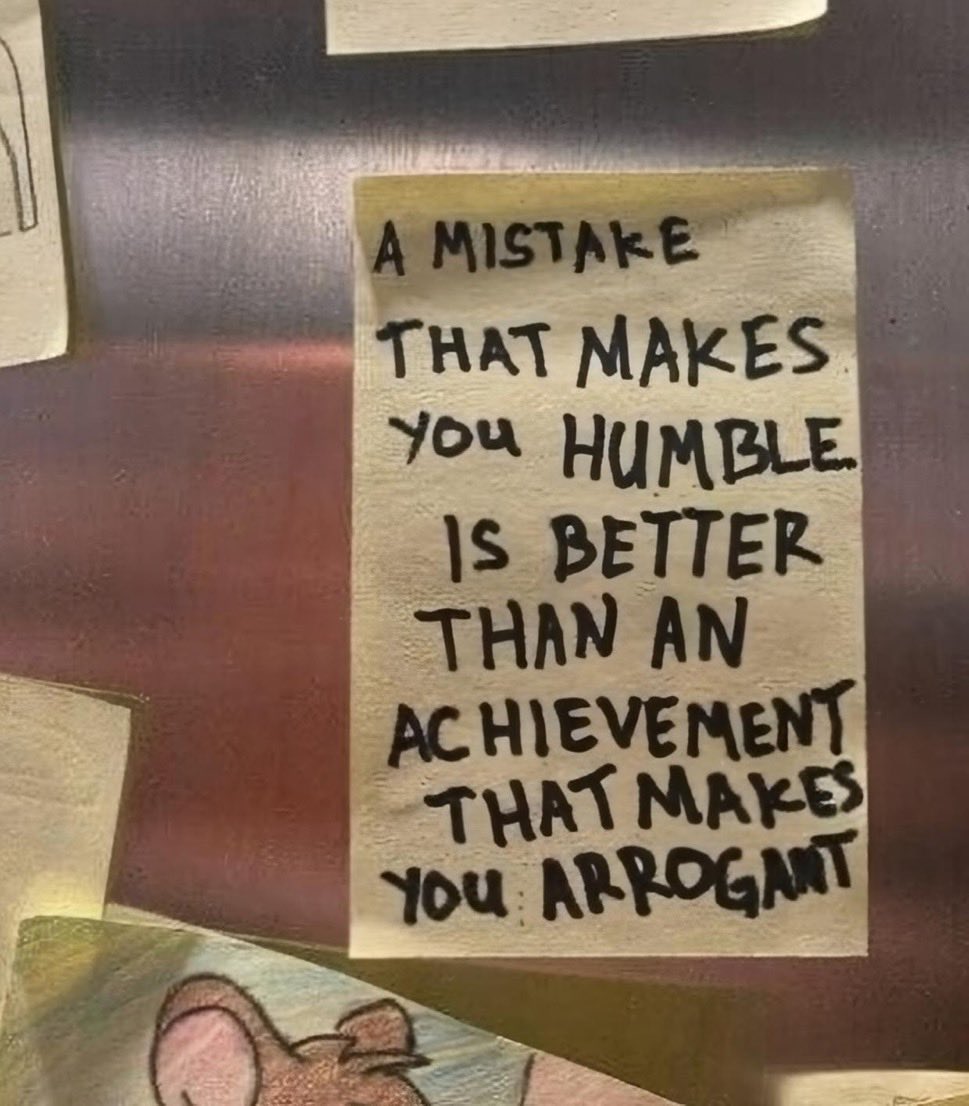 A MISTAKE
THAT MAKES
YOU HUMBLE
IS BETTER
THAN AN
ACHIEVEMENT
THAT MAKES
YOU ARROGANT